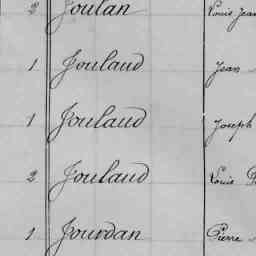 2 Joulan Louis Jean
1 Joulaud Jean
1 Joulaud Joseph
2 Joulaud Louis
1 Jourdan Pierre